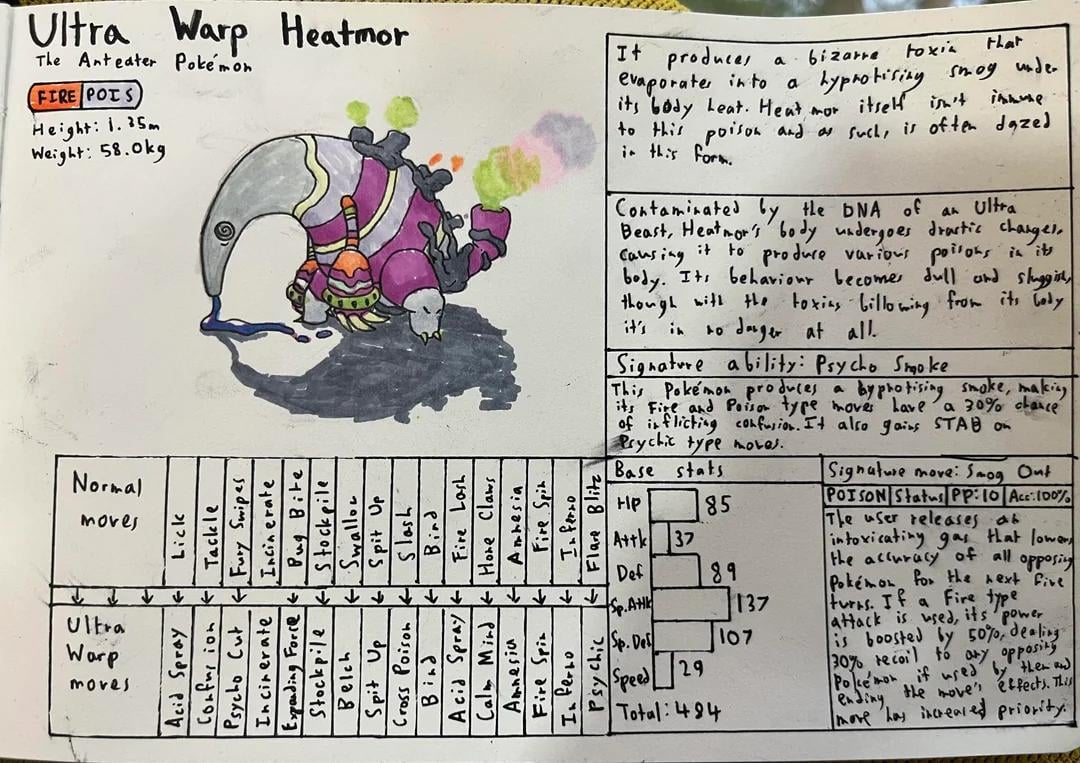 Ultra Warp Heatmor
The Anteater Pokémon
FIRE POIS
Height: 1.35m
Weight: 58.0kg
It produces a bizarre toxin that
evaporates into a hypnotising smog under
its body heat. Heatmor itself isn't immune
to this poison and as such, is often dazed
in this form.
Contaminated by the DNA of an Ultra
Beast, Heatmor's body undergoes drastic changes,
causing it to produce various poisons in its
body. Its behaviour becomes dull and sluggish,
though with the toxins billowing from its body
it's in no danger at all.
Signature ability: Psycho Smoke
This Pokémon produces a hypnotising smoke, making
its Fire and Poison type moves have a 30% chance
of inflicting confusion. It also gains STAB on
Psychic type moves.
Normal
moves
Lick
Tackle
Fury Swipes
Incinerate
Bug Bite
Stockpile
Swallow
Spit Up
Slash
Bind
Fire Lash
Hone Claws
Amnesia
Fire Spin
Inferno
Flare Blitz
Ultra
Warp
moves
Acid Spray
Confusion
Psycho Cut
Incinerate
Expanding Force
Stockpile
Belch
Spit Up
Cross Poison
Bind
Acid Spray
Calm Mind
Amnesia
Fire Spin
Inferno
Psychic
Base stats
Hp 85
Attk 37
Def 89
Sp.Attk 137
Sp.Def 107
Speed 29
Total: 484
Signature move: Smog Out
POISON Status PP:10 Acc:100%
The user releases an
intoxicating gas that lowers
the accuracy of all opposing
Pokémon for the next five
turns. If a Fire type
attack is used, its power
is boosted by 50%, dealing
30% recoil to any opposing
Pokémon if used by them and
ending the move's effects. This
move has increased priority.